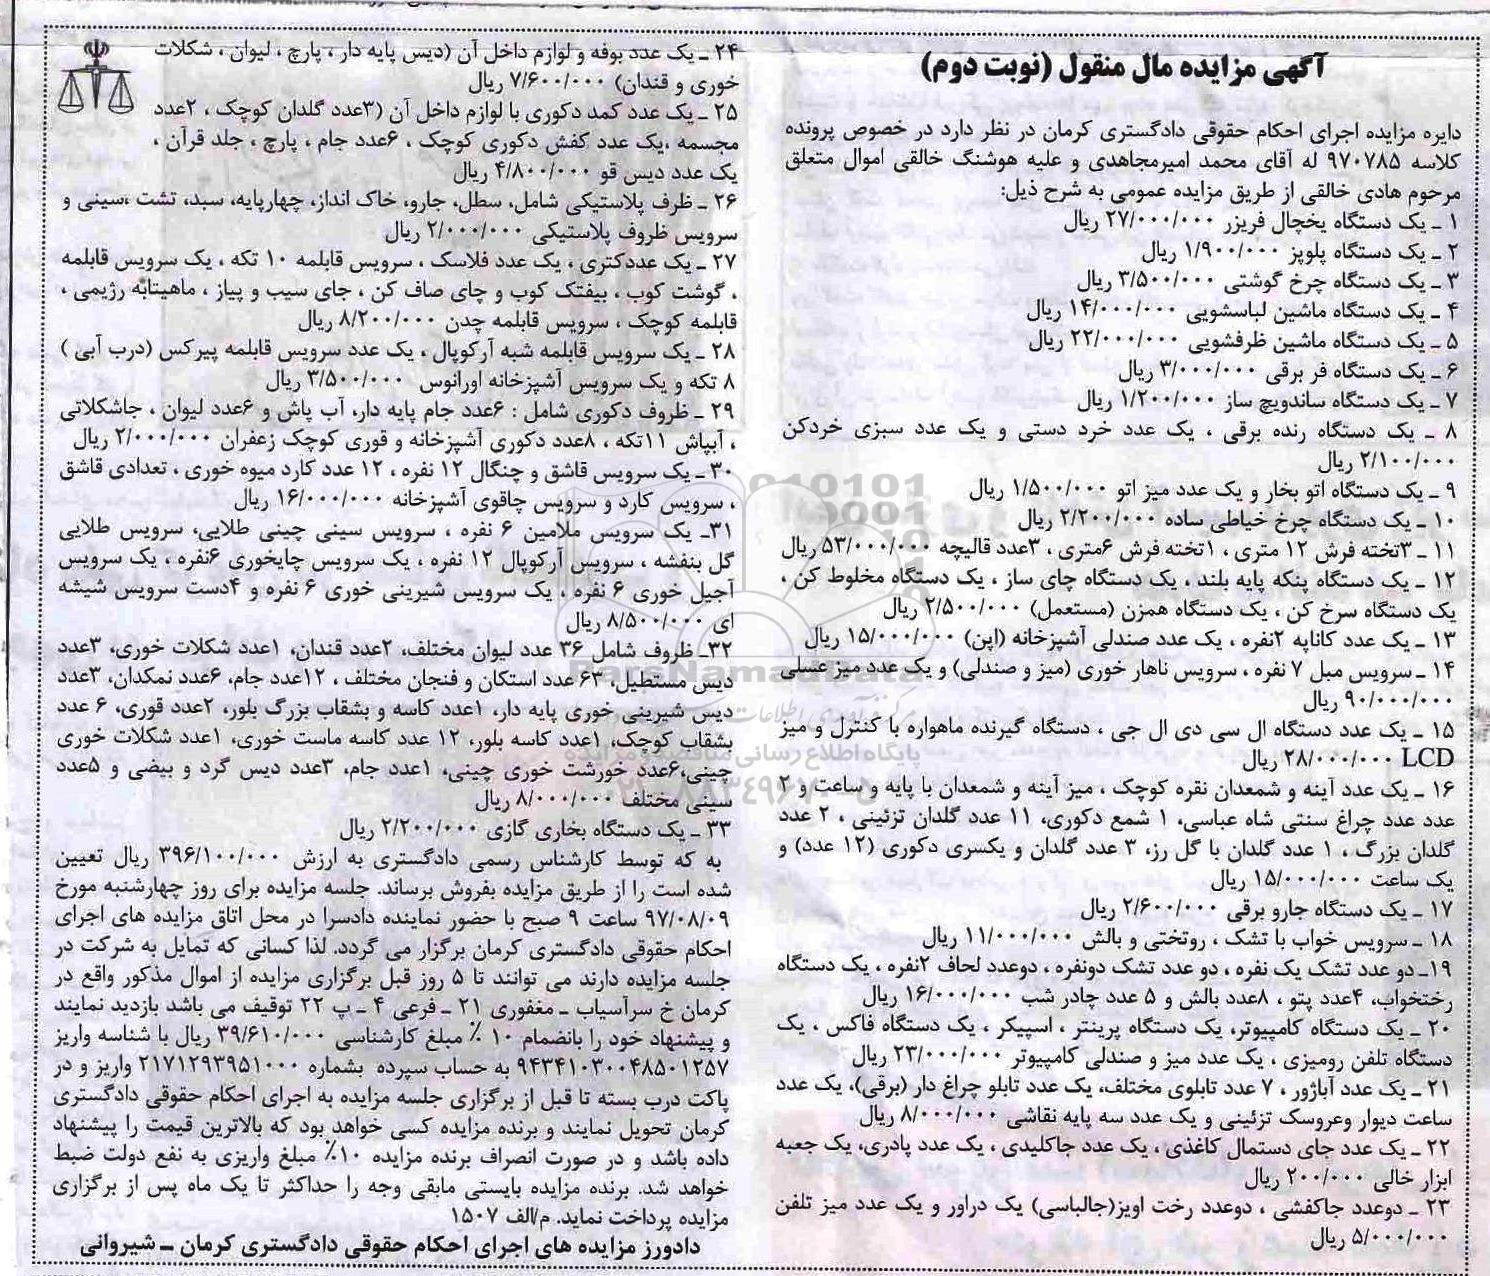 آگهی مزایده مال منقول (نوبت دوم)
دایره مزایده اجرای احکام حقوقی دادگستری کرمان در نظر دارد در خصوص پرونده
کلاسه ۹۷۰۷۸۵ له آقای محمد امیرمجاهدی و علیه هوشنگ خالقی اموال متعلق
مرحوم هادی خالقی از طریق مزایده عمومی به شرح ذیل:
۱ ـ یک دستگاه یخچال فریزر ۲۷/۰۰۰/۰۰۰ ریال
۲ ـ یک دستگاه پلوپز ۱/۹۰۰/۰۰۰ ریال
۳ ـ یک دستگاه چرخ گوشتی ۳/۵۰۰/۰۰۰ ریال
۴ ـ یک دستگاه ماشین لباسشویی ۱۴/۰۰۰/۰۰۰ ریال
۵ ـ یک دستگاه ماشین ظرفشویی ۲۲/۰۰۰/۰۰۰ ریال
۶ ـ یک دستگاه فر برقی ۳/۰۰۰/۰۰۰ ریال
۷ ـ یک دستگاه ساندویچ ساز ۱/۲۰۰/۰۰۰ ریال
۸ ـ یک دستگاه رنده برقی ، یک عدد خرد دستی و یک عدد سبزی خردکن
۲/۱۰۰/۰۰۰ ریال
۹ ـ یک دستگاه اتو بخار و یک عدد میز اتو ۱/۵۰۰/۰۰۰ ریال
۱۰ ـ یک دستگاه چرخ خیاطی ساده ۲/۲۰۰/۰۰۰ ریال
۱۱ ـ ۳تخته فرش ۱۲ متری ، ۱تخته فرش ۶متری ، ۳عدد قالیچه ۵۳/۰۰۰/۰۰۰ ریال
۱۲ ـ یک دستگاه پنکه پایه بلند ، یک دستگاه چای ساز ، یک دستگاه مخلوط کن ،
یک دستگاه سرخ کن ، یک دستگاه همزن (مستعمل) ۲/۵۰۰/۰۰۰ ریال
۱۳ ـ یک عدد کاناپه ۲نفره ، یک عدد صندلی آشپزخانه (اپن) ۱۵/۰۰۰/۰۰۰ ریال
۱۴ ـ سرویس مبل ۷ نفره ، سرویس ناهار خوری (میز و صندلی) و یک عدد میز عسلی
۹۰/۰۰۰/۰۰۰ ریال
۱۵ ـ یک عدد دستگاه ال سی دی ال جی ، دستگاه گیرنده ماهواره با کنترل و میز
LCD ۲۸/۰۰۰/۰۰۰ ریال
۱۶ ـ یک عدد آینه و شمعدان نقره کوچک ، میز آینه و شمعدان با پایه و ساعت و ۲
عدد عدد چراغ سنتی شاه عباسی، ۱ شمع دکوری، ۱۱ عدد گلدان تزئینی ، ۲ عدد
گلدان بزرگ ، ۱ عدد گلدان با گل رز، ۳ عدد گلدان و یکسری دکوری (۱۲ عدد) و
یک ساعت ۱۵/۰۰۰/۰۰۰ ریال
۱۷ ـ یک دستگاه جارو برقی ۲/۶۰۰/۰۰۰ ریال
۱۸ ـ سرویس خواب با تشک ، روتختی و بالش ۱۱/۰۰۰/۰۰۰ ریال
۱۹ـ دو عدد تشک یک نفره ، دو عدد تشک دونفره ، دوعدد لحاف ۲نفره ، یک دستگاه
رختخواب، ۴عدد پتو ، ۸عدد بالش و ۵ عدد چادر شب ۱۶/۰۰۰/۰۰۰ ریال
۲۰ ـ یک دستگاه کامپیوتر، یک دستگاه پرینتر ، اسپیکر ، یک دستگاه فاکس ، یک
دستگاه تلفن رومیزی ، یک عدد میز و صندلی کامپیوتر ۲۳/۰۰۰/۰۰۰ ریال
۲۱ ـ یک عدد آباژور ، ۷ عدد تابلوی مختلف، یک عدد تابلو چراغ دار (برقی)، یک عدد
ساعت دیوار وعروسک تزئینی و یک عدد سه پایه نقاشی ۸/۰۰۰/۰۰۰ ریال
۲۲ ـ یک عدد جای دستمال کاغذی ، یک عدد جاکلیدی ، یک عدد پادری، یک جعبه
ابزار خالی ۲۰۰/۰۰۰ ریال
۲۳ ـ دوعدد جاکفشی ، دوعدد رخت اویز(جالباسی) یک دراور و یک عدد میز تلفن
۵/۰۰۰/۰۰۰ ریال
۲۴ ـ یک عدد بوفه و لوازم داخل آن (دیس پایه دار ، پارچ ، لیوان ، شکلات
خوری و قندان) ۷/۶۰۰/۰۰۰ ریال
۲۵ ـ یک عدد کمد دکوری با لوازم داخل آن (۳عدد گلدان کوچک ، ۲عدد
مجسمه ،یک عدد کفش دکوری کوچک ، ۶عدد جام ، پارچ ، جلد قرآن ،
یک عدد دیس قو ۴/۸۰۰/۰۰۰ ریال
۲۶ ـ ظرف پلاستیکی شامل، سطل، جارو، خاک انداز، چهارپایه، سبد، تشت ،سینی و
سرویس ظروف پلاستیکی ۲/۰۰۰/۰۰۰ ریال
۲۷ ـ یک عددکتری ، یک عدد فلاسک ، سرویس قابلمه ۱۰ تکه ، یک سرویس قابلمه
، گوشت کوب ، بیفتک کوب و چای صاف کن ، جای سیب و پیاز ، ماهیتابه رژیمی ،
قابلمه کوچک ، سرویس قابلمه چدن ۸/۲۰۰/۰۰۰ ریال
۲۸ ـ یک سرویس قابلمه شبه آرکوپال ، یک عدد سرویس قابلمه پیرکس (درب آبی )
۸ تکه و یک سرویس آشپزخانه اورانوس ۳/۵۰۰/۰۰۰ ریال
۲۹ ـ ظروف دکوری شامل : ۶عدد جام پایه دار، آب پاش و ۶عدد لیوان ، جاشکلاتی
، آبپاش ۱۱تکه ، ۸عدد دکوری آشپزخانه و قوری کوچک زعفران ۲/۰۰۰/۰۰۰ ریال
۳۰ ـ یک سرویس قاشق و چنگال ۱۲ نفره ، ۱۲ عدد کارد میوه خوری ، تعدادی قاشق
، سرویس کارد و سرویس چاقوی آشپزخانه ۱۶/۰۰۰/۰۰۰ ریال
۳۱ـ یک سرویس ملامین ۶ نفره ، سرویس سینی چینی طلایی، سرویس طلایی
گل بنفشه ، سرویس آرکوپال ۱۲ نفره ، یک سرویس چایخوری ۶نفره ، یک سرویس
آجیل خوری ۶ نفره ، یک سرویس شیرینی خوری ۶ نفره و ۴دست سرویس شیشه
ای ۸/۵۰۰/۰۰۰ ریال
۳۲ـ ظروف شامل ۳۶ عدد لیوان مختلف، ۲عدد قندان، ۱عدد شکلات خوری، ۳عدد
دیس مستطیل، ۶۳ عدد استکان و فنجان مختلف ، ۱۲عدد جام، ۶عدد نمکدان، ۳عدد
دیس شیرینی خوری پایه دار، ۱عدد کاسه و بشقاب بزرگ بلور، ۲عدد قوری، ۶ عدد
بشقاب کوچک، ۱عدد کاسه بلور، ۱۲ عدد کاسه ماست خوری، ۱عدد شکلات خوری
چینی،۶عدد خورشت خوری چینی، ۱عدد جام، ۳عدد دیس گرد و بیضی و ۵عدد
سینی مختلف ۸/۰۰۰/۰۰۰ ریال
۳۳ ـ یک دستگاه بخاری گازی ۲/۲۰۰/۰۰۰ ریال
به که توسط کارشناس رسمی دادگستری به ارزش ۳۹۶/۱۰۰/۰۰۰ ریال تعیین
شده است را از طریق مزایده بفروش برساند. جلسه مزایده برای روز چهارشنبه مورخ
۹۷/۰۸/۰۹ ساعت ۹ صبح با حضور نماینده دادسرا در محل اتاق مزایده های اجرای
احکام حقوقی دادگستری کرمان برگزار می گردد. لذا کسانی که تمایل به شرکت در
جلسه مزایده دارند می توانند تا ۵ روز قبل برگزاری مزایده از اموال مذکور واقع در
کرمان خ سرآسیاب ـ مغفوری ۲۱ ـ فرعی ۴ ـ پ ۲۲ توقیف می باشد بازدید نمایند
و پیشنهاد خود را بانضمام ۱۰ ٪ مبلغ کارشناسی ۳۹/۶۱۰/۰۰۰ ریال با شناسه واریز
۹۴۳۴۱۰۳۰۰۴۸۵۰۱۲۵۷ به حساب سپرده بشماره ۲۱۷۱۲۹۳۹۵۱۰۰۰ واریز و در
پاکت درب بسته تا قبل از برگزاری جلسه مزایده به اجرای احکام حقوقی دادگستری
کرمان تحویل نمایند و برنده مزایده کسی خواهد بود که بالاترین قیمت را پیشنهاد
داده باشد و در صورت انصراف برنده مزایده ۱۰٪ مبلغ واریزی به نفع دولت ضبط
خواهد شد. برنده مزایده بایستی مابقی وجه را حداکثر تا یک ماه پس از برگزاری
مزایده پرداخت نماید. م/الف ۱۵۰۷
دادورز مزایده های اجرای احکام حقوقی دادگستری کرمان ـ شیروانی
ParsNamadData
پایگاه اطلاع رسانی مناقصه و مزایده